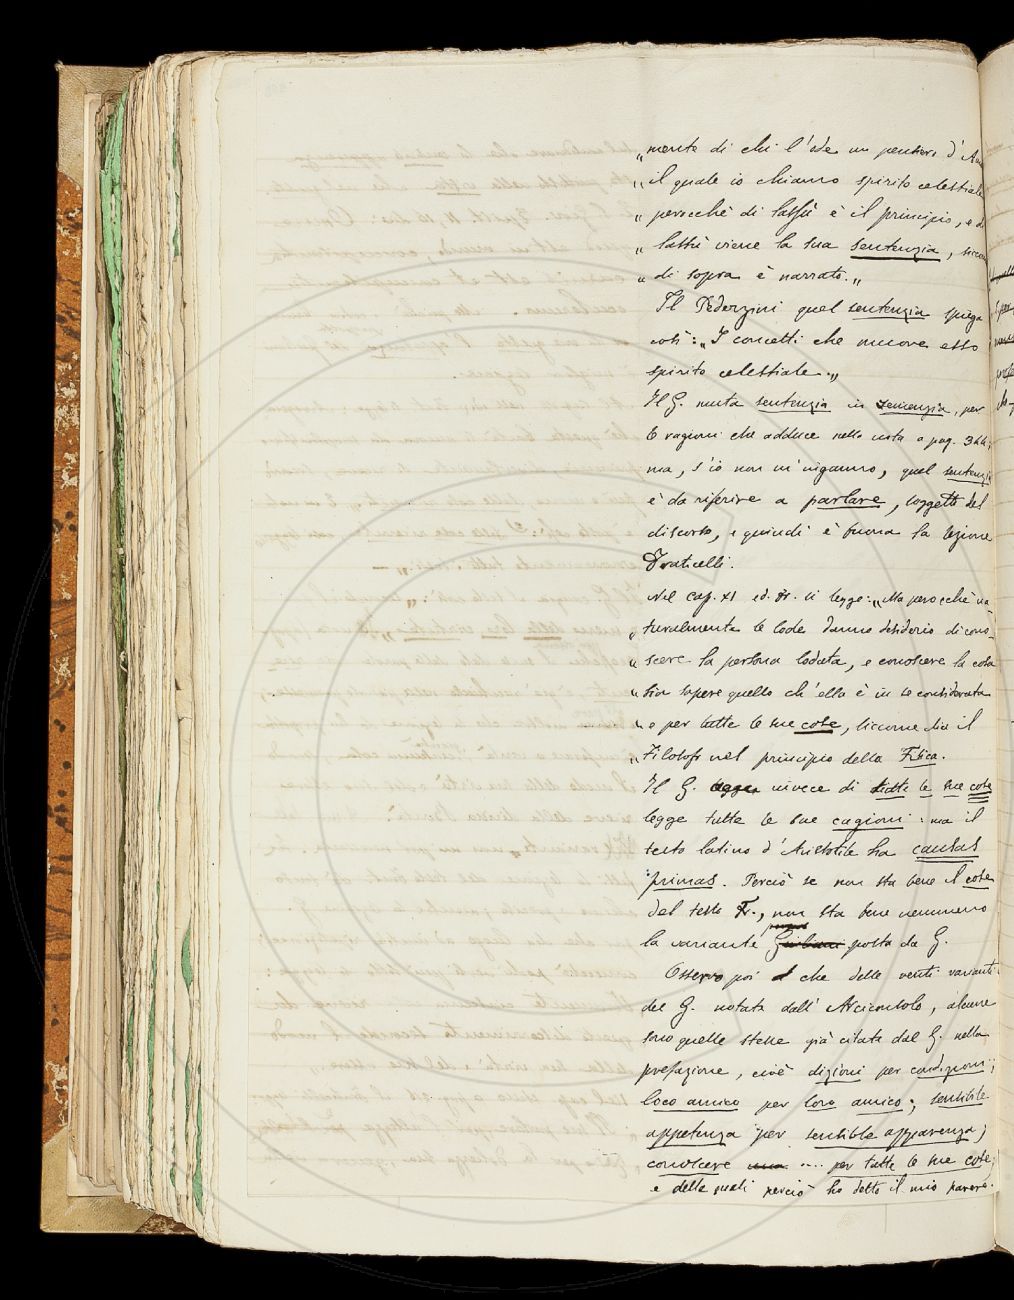 „ mente di chi l'ode un pensero d'A
„ il quale io chiamo spirito celestiale
„ perocchè di lassù è il principio, e d
„ lassù viene la sua sentenzia, sicco
„ di sopra è narrato."
Il Pederzini quel sentenzia spiega
così: „I concetti che muove esso
spirito celestiale."
Il G. muta sentenzia in semenzia, per
le ragioni che adduce nella nota a pag. 344;
ma, s'io non m'inganno, quel sentenzia
è da riferire a parlare, soggetto del
discorso, e quindi è buona la lezione
Fraticelli.
Nel cap. XI ed. Fr. si legge: „Ma perocchè na-
„ turalmente le lode danno desiderio di cono-
„ scere la persona lodata, e conoscere la cosa
„ sia sapere quello ch'ella è in se considerata
„ e per tutte le sue cose, siccome dice il
„ Filosofo nel principio della Fisica.
Il G. legge invece di tutte le sue cose
legge tutte le sue cagioni: ma il
testo latino d'Aristotile ha causas
primas. Perciò se non sta bene il cose
del testo Fr., non sta bene nemmeno
la variante Giuliani posta da G.
Osservo poi che delle venti varianti
del G. notate dall' Arciconsolo, alcune
sono quelle stesse già citate dal G. nella
prefazione, cioè dizioni per condizioni;
loco amico per loro amico; sensibile
appetenza per sensibile apparenza;
conoscere .... per tutte le sue cose;
e delle quali perciò ho detto il mio parere.